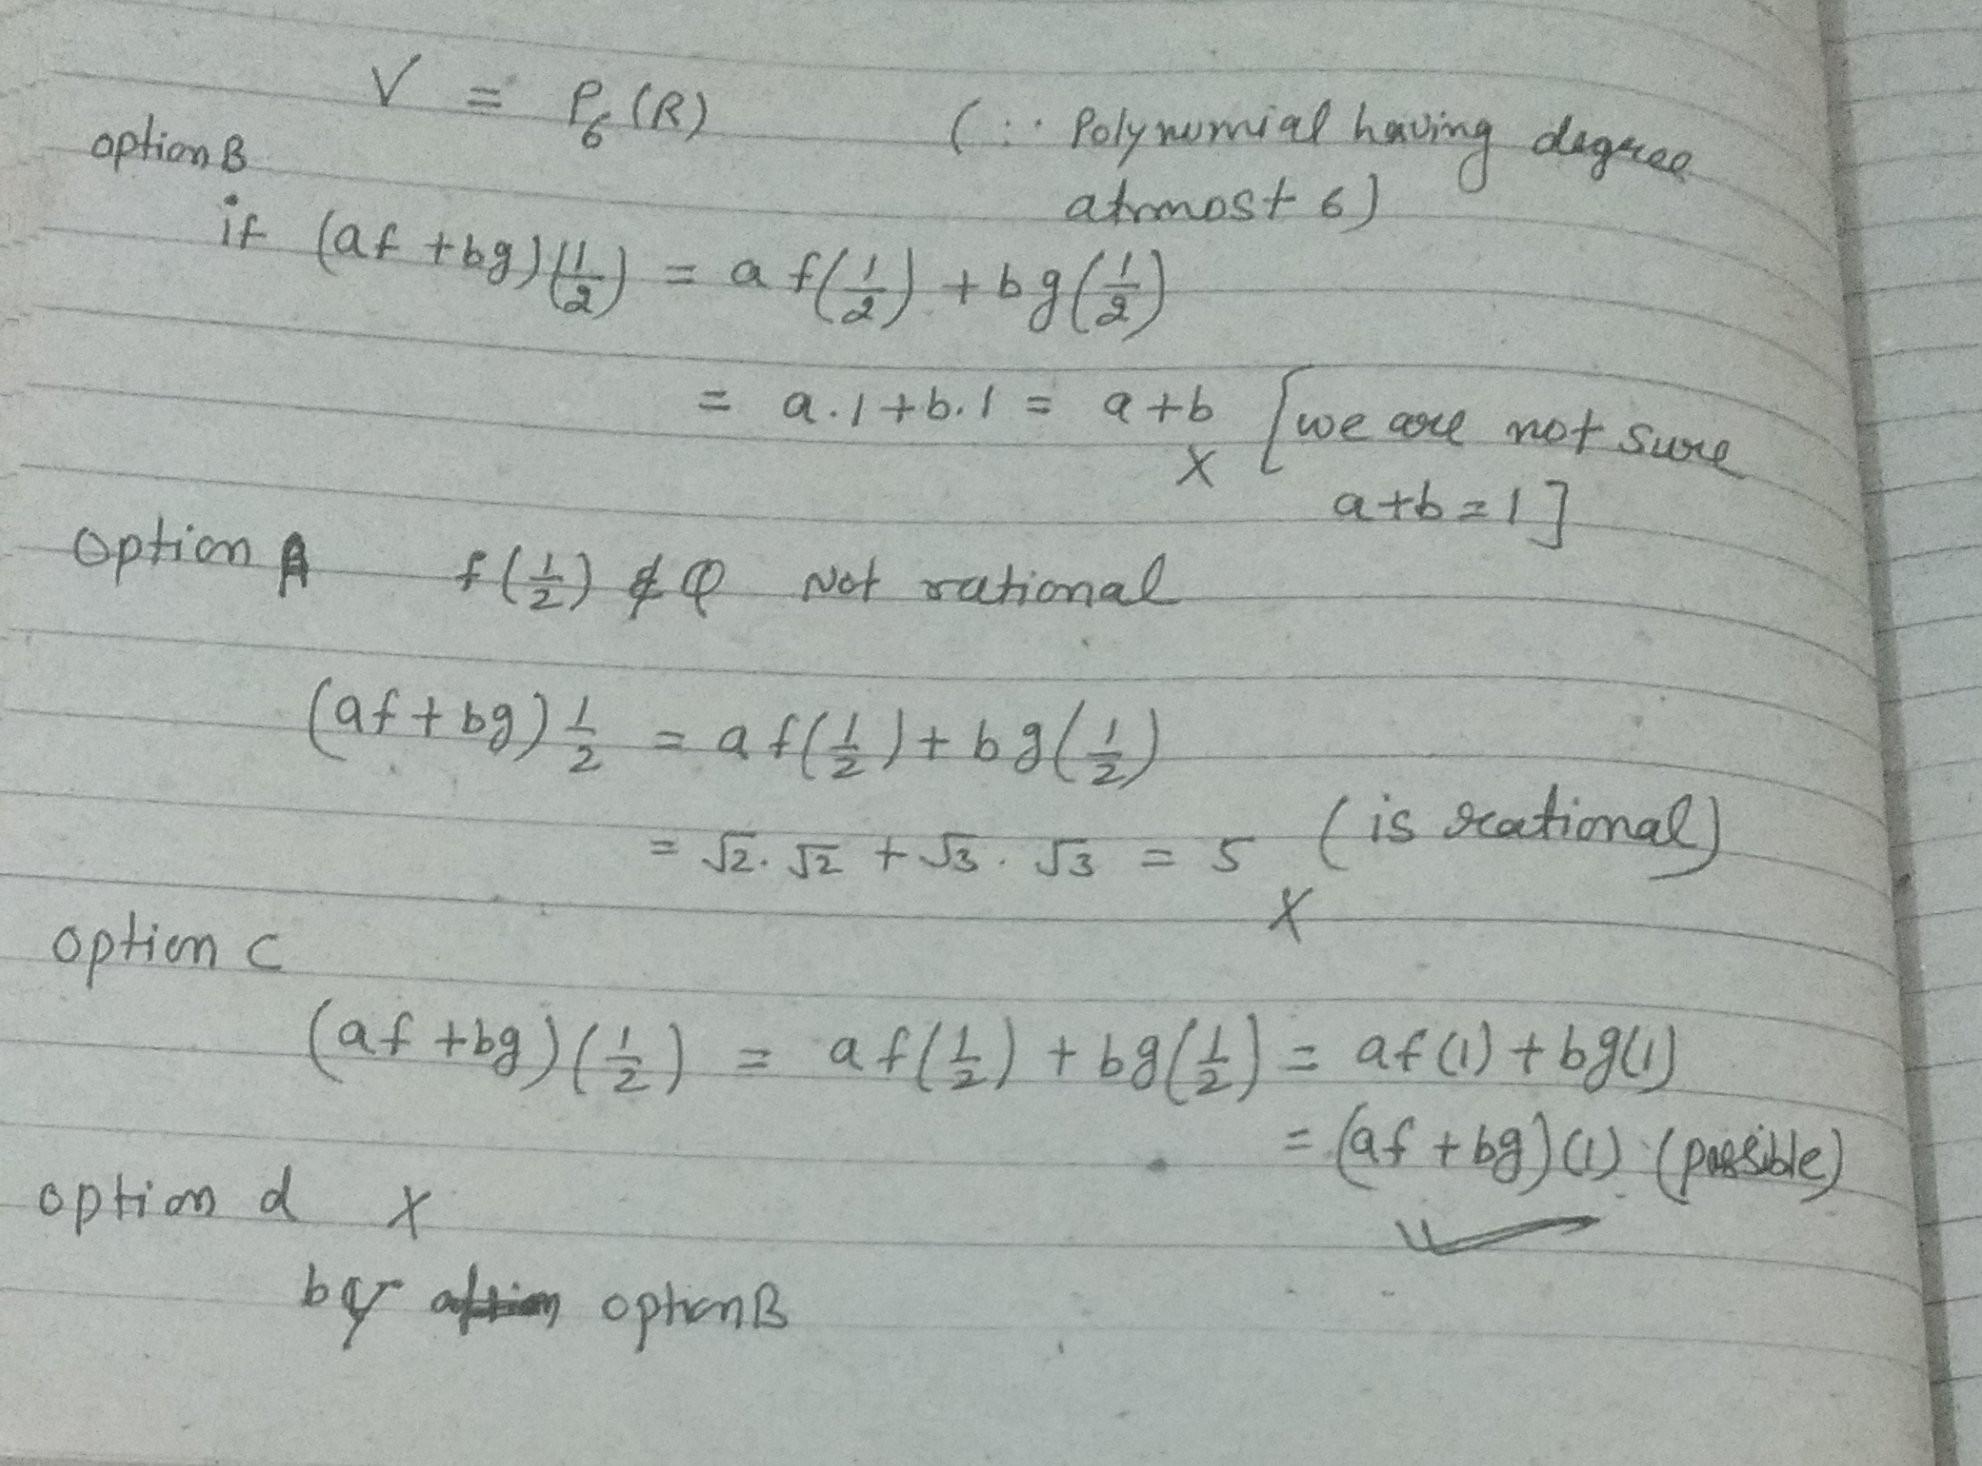 V = P₆(R) (∵ Polynomial having degree
atmost 6)
option B
if (af + bg)(1/2) = a f(1/2) + b g(1/2)
= a.1 + b.1 = a + b [we are not sure
X a + b = 1]
option A f(1/2) ∉ Q Not rational
(af + bg) 1/2 = a f(1/2) + b g(1/2)
= √2 . √2 + √3 . √3 = 5 (is rational)
X
option C
(af + bg)(1/2) = a f(1/2) + b g(1/2) = a f(1) + b g(1)
= (af + bg)(1) (possible)
option d X
by option B